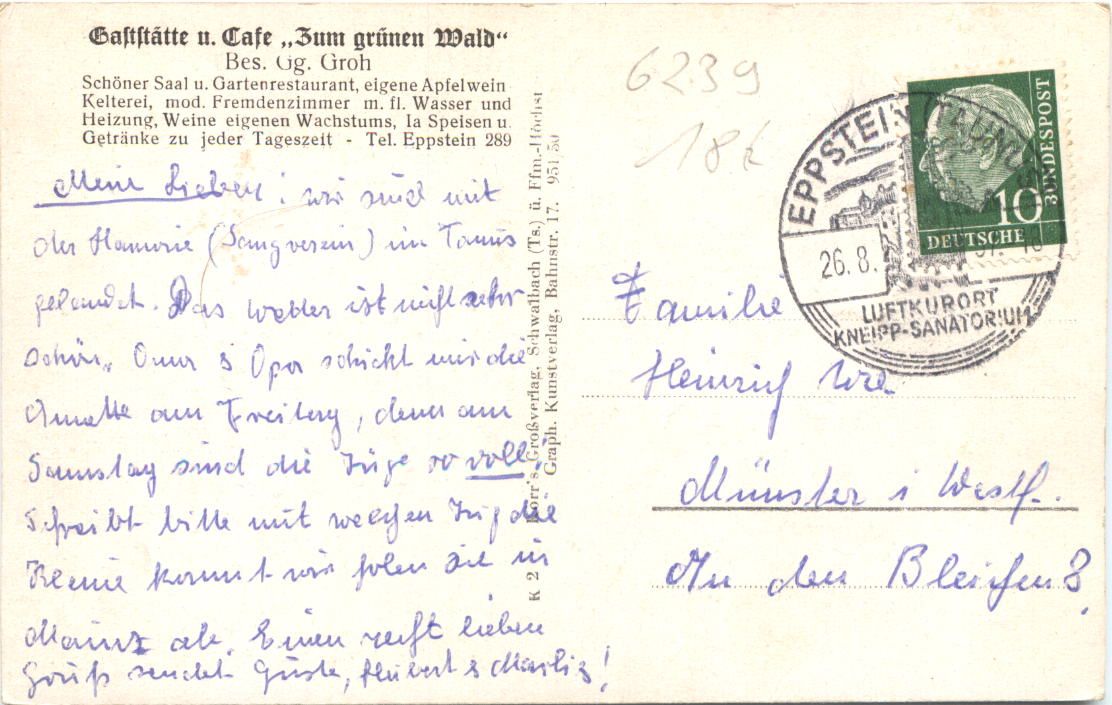 Gaststätte u. Cafe „Zum grünen Wald“
Bes. Gg. Groh
Schöner Saal u. Gartenrestaurant, eigene Apfelwein
Kelterei, mod. Fremdenzimmer m. fl. Wasser und
Heizung, Weine eigenen Wachstums, Ia Speisen u.
Getränke zu jeder Tageszeit - Tel. Eppstein 289
Meine Lieben! wir sind mit
der (Sangverein) im Taunus
gelandet. Das Wetter ist nicht sehr
schön. Oma & Opa schickt mir die
Annette am Freitag, denn am
Samstag sind die Züge so voll!
Schreibt bitte mit welchen Zug die
Kleine kommt wir holen sie in
Mainz ab. Einen recht lieben
Gruß sendet Guste, Hubert & Marlis!
K 2 Korr's Großverlag, Schwalbach (Ts.) ü. Ffm.-Höchst
Graph. Kunstverlag, Bahnstr. 17. 951/50
6239
18
EPPSTEIN (TAUNUS)
26.8.
LUFTKURORT
KNEIPP-SANATORIUM
10
DEUTSCHE
BUNDESPOST
Familie
Heinrich
Münster i Westf.
An den Bleichen 8